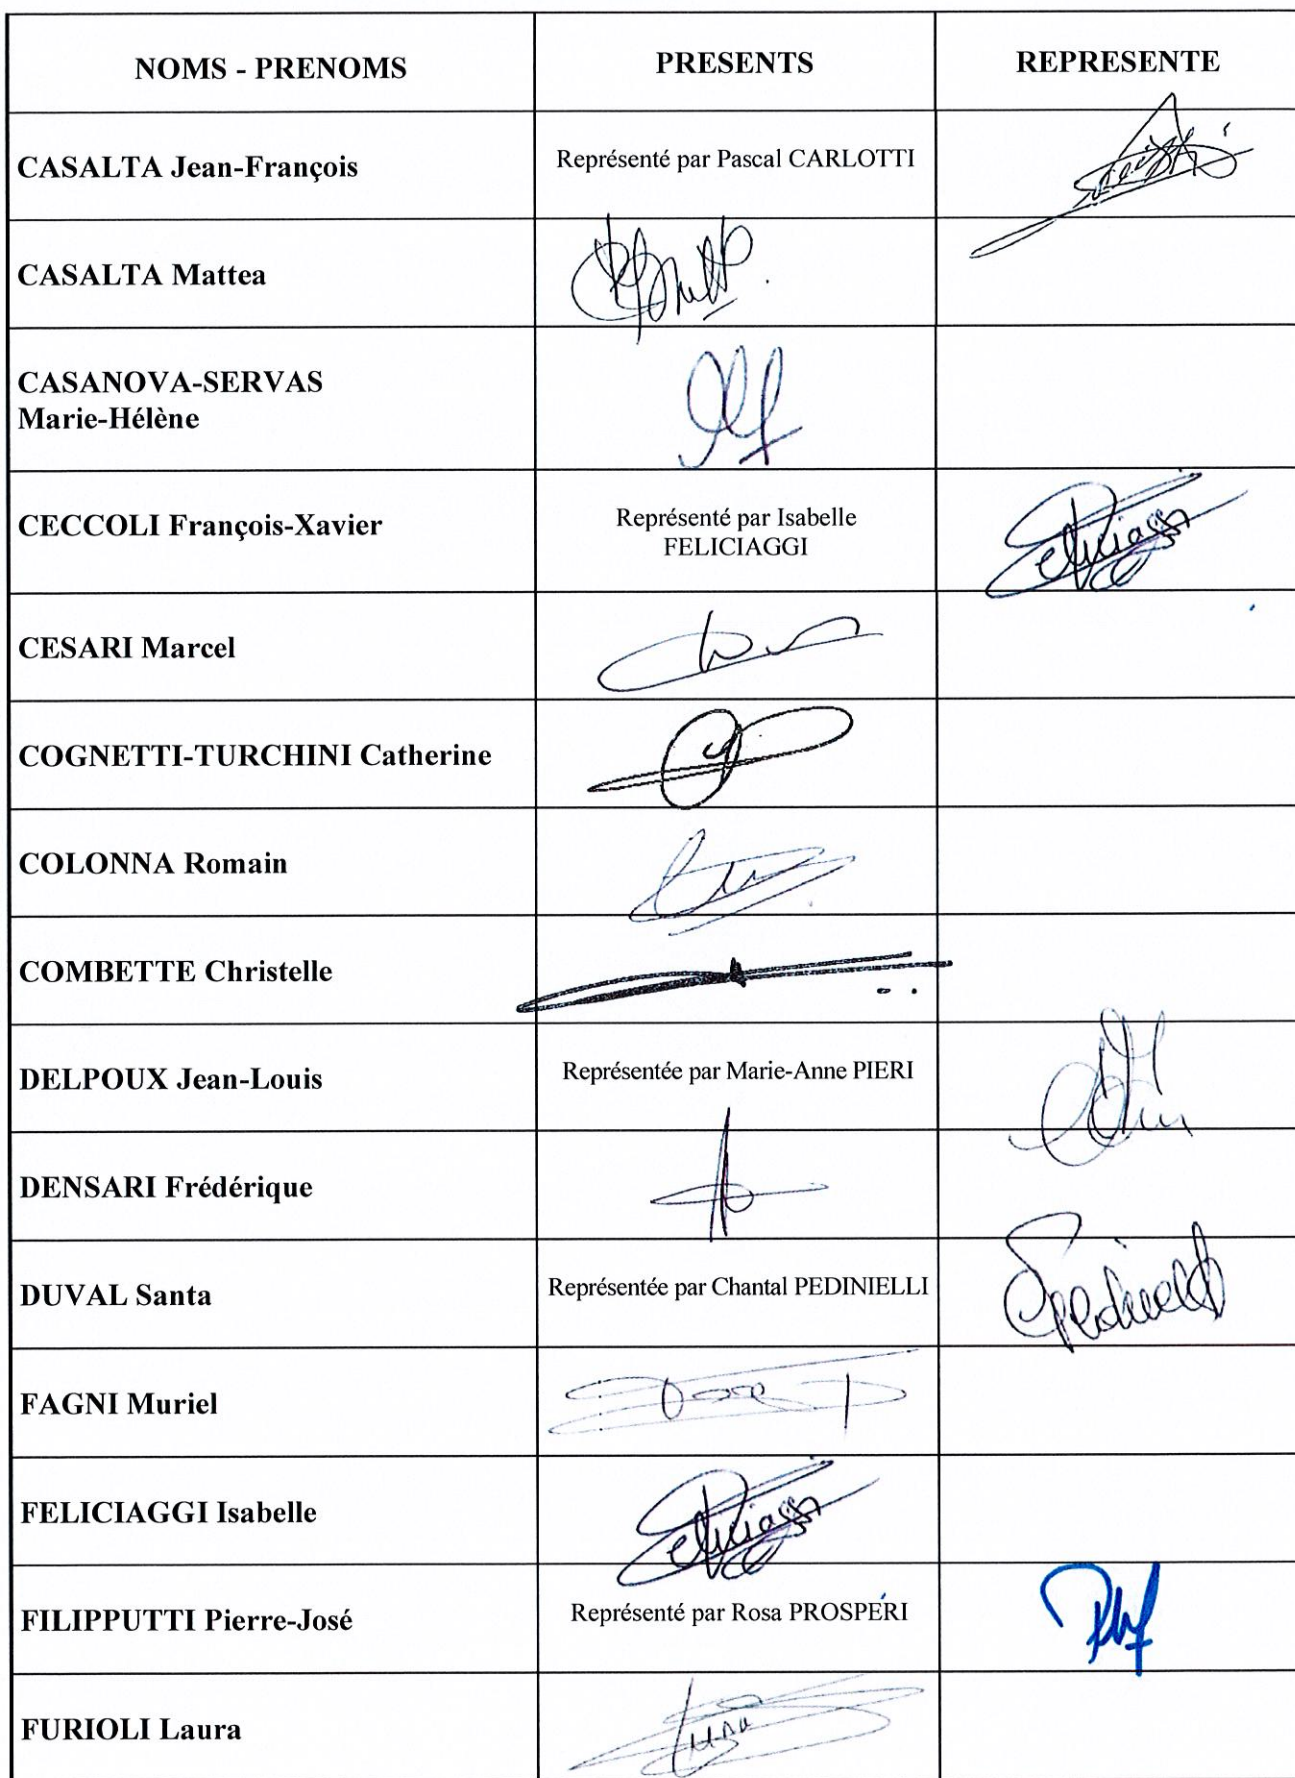 NOMS - PRENOMS PRESENTS REPRESENTE
CASALTA Jean-François Représenté par Pascal CARLOTTI
CASALTA Mattea
CASANOVA-SERVAS
Marie-Hélène
CECCOLI François-Xavier Représenté par Isabelle
FELICIAGGI
CESARI Marcel
COGNETTI-TURCHINI Catherine
COLONNA Romain
COMBETTE Christelle
DELPOUX Jean-Louis Représentée par Marie-Anne PIERI
DENSARI Frédérique
DUVAL Santa Représentée par Chantal PEDINIELLI
FAGNI Muriel
FELICIAGGI Isabelle
FILIPPUTTI Pierre-José Représenté par Rosa PROSPERI
FURIOLI Laura